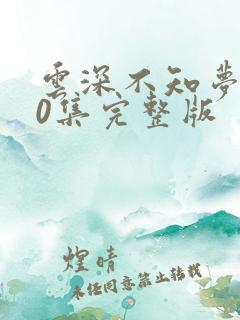 雲深不知夢
0集完整版
煌晴
未经同意禁止转载